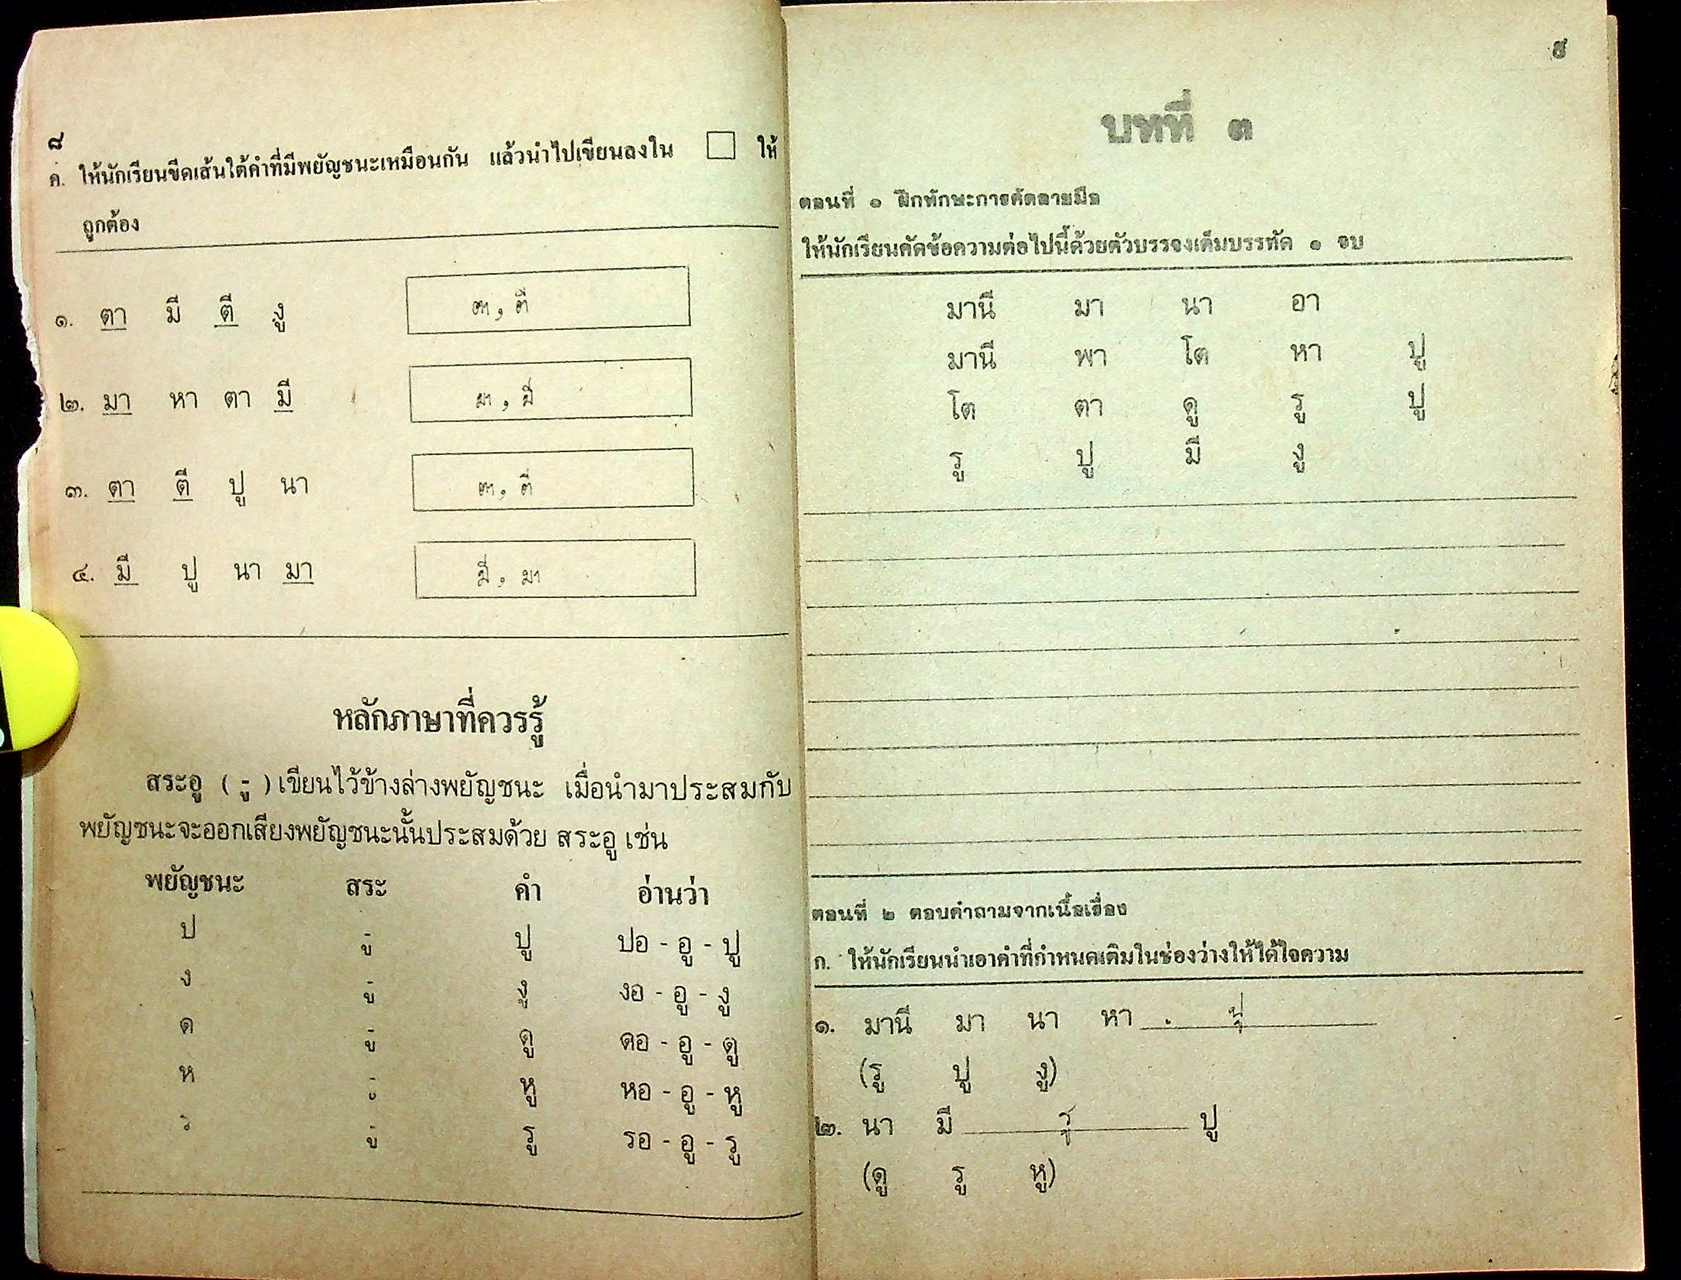 ๘
ค. ให้นักเรียนขีดเส้นใต้คำที่มีพยัญชนะเหมือนกัน แล้วนำไปเขียนลงใน ให้
ถูกต้อง
๑. ตา มี ตี งู
ตา, ตี
๒. มา หา ตา มี
มา, มี
๓. ตา ตี ปู นา
ตา, ตี
๔. มี ปู นา มา
มี, มา
หลักภาษาที่ควรรู้
สระอู ( -ู ) เขียนไว้ข้างล่างพยัญชนะ เมื่อนำมาประสมกับ
พยัญชนะจะออกเสียงพยัญชนะนั้นประสมด้วย สระอู เช่น
พยัญชนะ สระ คำ อ่านว่า
ป -ู ปู ปอ - อู - ปู
ง -ู งู งอ - อู - งู
ด -ู ดู ดอ - อู - ดู
ห -ู หู หอ - อู - หู
ร -ู รู รอ - อู - รู
๙
บทที่ ๓
ตอนที่ ๑ ฝึกทักษะการคัดลายมือ
ให้นักเรียนคัดข้อความต่อไปนี้ด้วยตัวบรรจงเต็มบรรทัด ๑ จบ
มานี มา นา อา
มานี พา โต หา ปู
โต ตา ดู รู ปู
รู ปู มี งู
ตอนที่ ๒ ตอบคำถามจากเนื้อเรื่อง
ก. ให้นักเรียนนำเอาคำที่กำหนดเติมในช่องว่างให้ได้ใจความ
๑. มานี มา นา หา ปู
(รู ปู งู)
๒. นา มี รู ปู
(ดู รู หู)